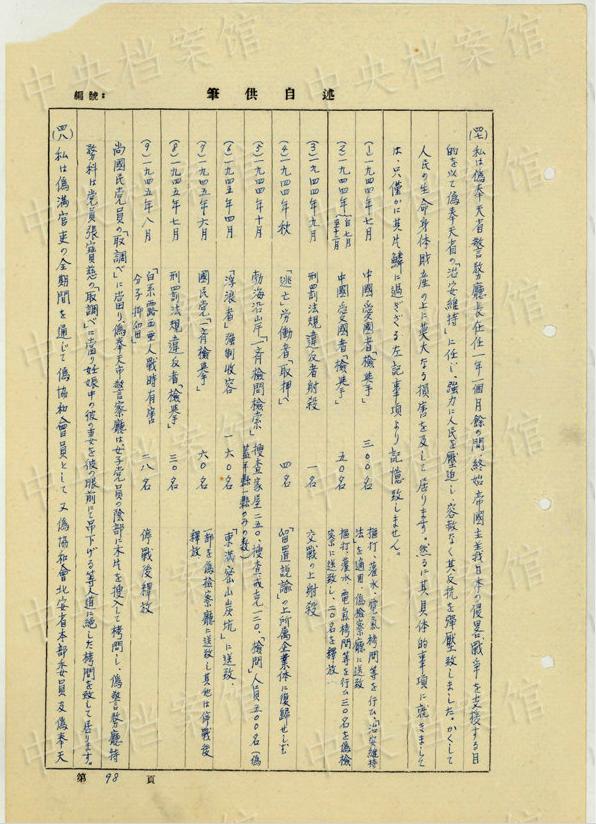 述自供筆
編號：
(四七)私は偽奉天省警務廳長在任一年一個月餘の間、終始帝國主義日本の侵略戰爭を支援する目
的を以て偽奉天省の「治安維持」に任じ、強力に人民を壓迫し、容赦なく其反抗を彈壓致しました。かくして
人民の生命身体財産の上に莫大なる損害を及して居ります。然るに其具体的事項に就きまして
は、只僅かに其片鱗に過ぎざる左記事項より記憶致しません。
(1)一九四四年七月 中國愛國者「檢擧」 三〇〇名 摑打、灌水、電氣拷問等を行ふ、「治安維持
法」を適用 偽檢察廳に送致
(2)一九四四年(自七月至十二月) 中國愛國者「檢擧」 五〇名 摑打、灌水、電氣拷問等を行ふ 三〇名を偽檢
察に送致し、二〇名を釋放
(3)一九四四年九月 刑罰法規違反者射殺 一名 交戰の上射殺
(4)一九四四年秋 「逃亡」労働者「取押へ」 四名 「留置説諭」の上所屬企業体に復歸せしむ
(5)一九四四年十月 勃海沿岸「一齊檢問檢索」 搜査家屋二五〇、搜査戎克一二〇、「檢問」人員五〇〇名(偽
蓋平縣一縣のみの数)
(6)一九四五年四月 「浮浪者」強制收容 一六〇名 「東滿密山炭坑」に送致
(7)一九四五年六月 國民党「一齊檢擧」 六〇名 一部を偽檢察廳に送致し其他は停戰後
釋放
(8)一九四五年七月 刑罰法規違反者「檢擧」 三〇名
(9)一九四五年八月 「白系露西亜人戰時有害
分子」抑留 二八名 停戰後釋放
尚國民党員の「取調べ」に當り、偽奉天市警察廳は女子党員の陰部に木片を搜入して拷問し、偽警務廳特
務科は党員張寶慈の「取調べ」に當り妊娠中の彼の妻を彼の眼前にて吊下げる等人道に絶した拷問を致して居ります。
(四八)私は偽滿官吏の全期間を通じて偽協和會員として、又偽協和會北安省本部委員及偽奉天
第 98 頁
中央档案馆